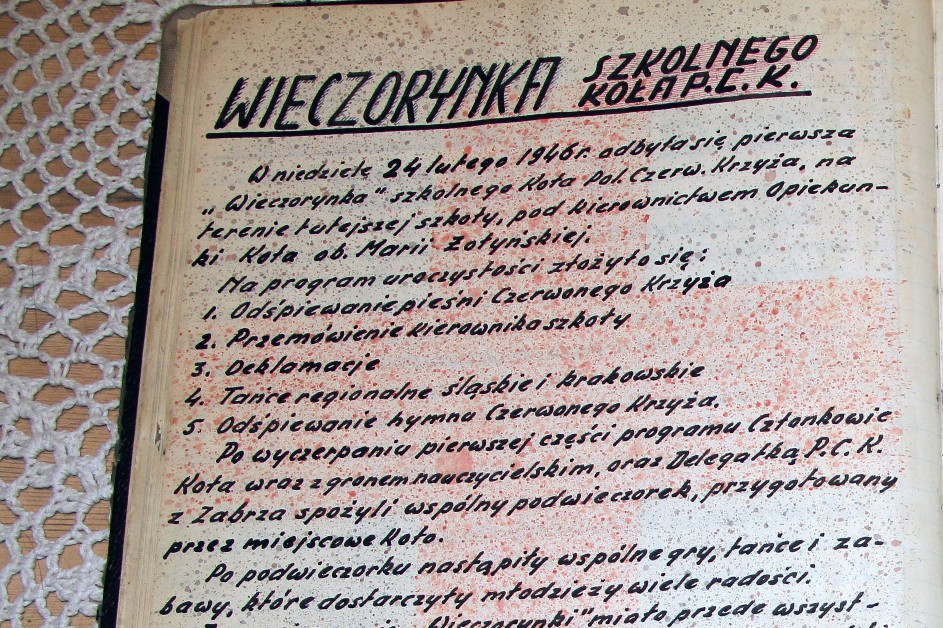 WIECZORYNKA SZKOLNEGO
KOŁA P.C.K.
W niedzielę 24 lutego 1946 r. odbyła się pierwsza
„Wieczorynka" szkolnego Koła Pol. Czerw. Krzyża, na
terenie tutejszej szkoły, pod kierownictwem Opiekun-
ki Koła ob. Marii Żołyńskiej.
Na program uroczystości złożyło się:
1. Odśpiewanie pieśni Czerwonego Krzyża
2. Przemówienie kierownika szkoły
3. Deklamacje
4. Tańce regionalne śląskie i krakowskie
5. Odśpiewanie hymnu Czerwonego Krzyża.
Po wyczerpaniu pierwszej części programu Członkowie
Koła wraz z gronem nauczycielskim, oraz Delegatką P.C.K.
z Zabrza spożyli wspólny podwieczorek, przygotowany
przez miejscowe Koło.
Po podwieczorku nastąpiły wspólne gry, tańce i za-
bawy, które dostarczyły młodzieży wiele radości.
Wieczorynki" miało przede wszyst-